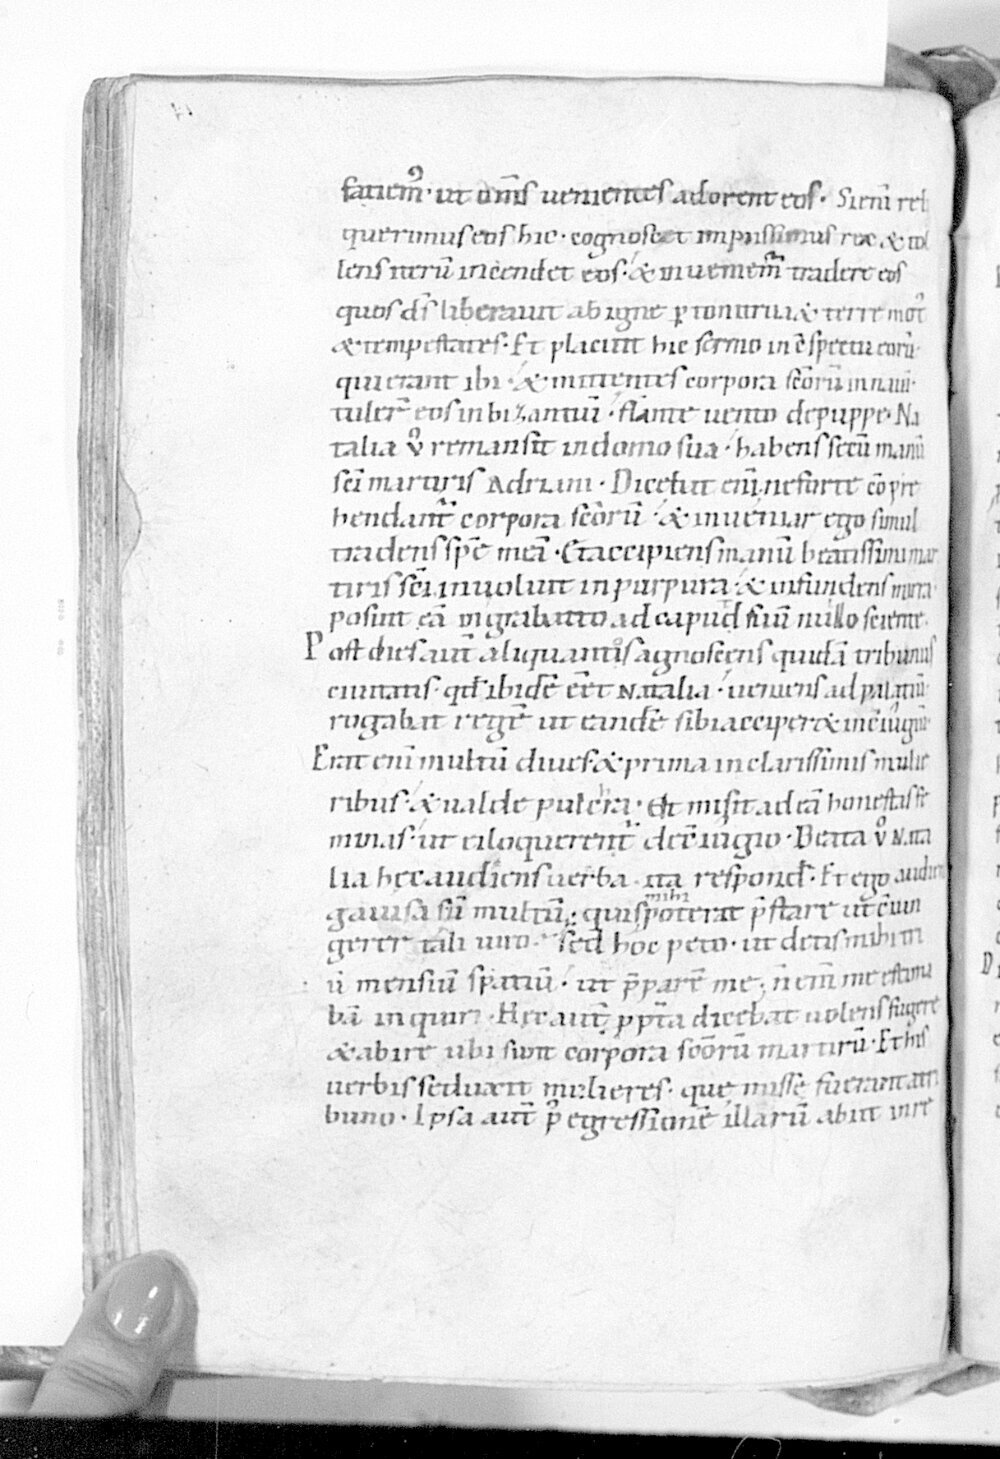 faciem᷒ · ut om̅s uenientes adorent eos · Si eni̅ reli
querimus eos hic · cognoscet impiissimus rex & tol
lens iteru̅ incendet eos · & inueniem᷒ tradere eos
quos d̅s liberauit ab igne p̱ tonitrua & terre mot᷒
& tempestates · Et placuit hic sermo in c̅spectu eoru̅ ·
qui erant ibi · & mittentes corpora sc̅oru̅ in naui ·
tuler̅ eos in bizantiu̅ · flante uento de puppe · Na
talia ů remansit in domo sua · habens secu̅ manu̅
sc̅i martiris Adriani · Dicebat eni̅ ne forte co̅pre
hendant᷑ corpora sc̅oru̅ · & inueniar ego simul
tradens spe̅ mea̅ · Et accipiens manu̅ beatissimi mar
tiris sc̅i inuoluit in purpura · & infundens mirra ·
posuit ea̅ in grabatto ad capud suu̅ nullo sciente ·
Post dies aut̅ aliquantos agnoscens quida̅ tribunus
ciuitatis · qd̅ ibide̅ ee̅t Natalia · ueniens ad palatiu̅
rogabat rege̅ ut eande̅ sibi acciper& in c̅iugiu̅ ·
Erat eni̅ multu̅ diues · & prima in clarissimis mulie
ribus · & ualde pulchra · Et misit ad ea̅ honestas fe
minas · ut ei loquerent᷑ de c̅iugio · Beata ů Nata
lia hęc audiens uerba · ita respond̅ · Et ego audiens
gauisa su̅ multu̅ · quis mihi poterat p̅stare ut c̅iun
gerer tali uiro · Sed hoc peto · ut detis mihi tri
u̅ mensiu̅ spatiu̅ · ut p̅pare̅ me · n̅ eni̅ me estima
ba̅ inquiri · Hęc aut̅ p̱pt̅a dicebat uolens fugere
& abire ubi sunt corpora sc̅oru̅ martiru̅ · Et his
uerbis seduxit mulieres · que missę fuerant a tri
buno · Ipsa aut̅ p᷒ egressione̅ illaru̅ abiit in re